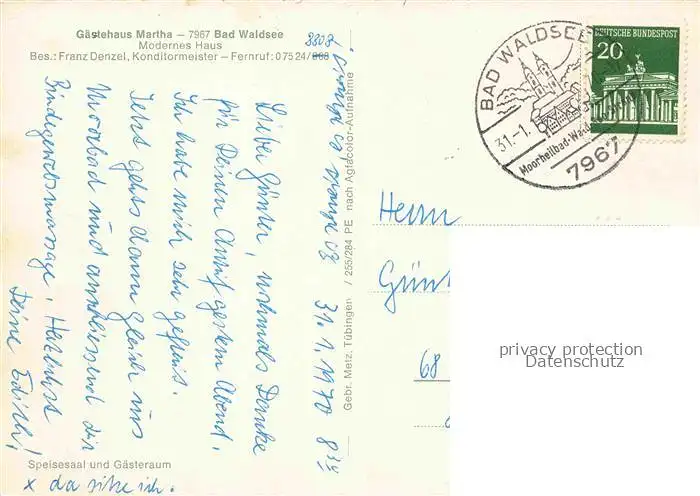 Gästehaus Martha — 7967 Bad Waldsee
Modernes Haus
Bes.: Franz Denzel, Konditormeister – Fernruf: 07524/868
3308
31.1.1970 8³⁴
Lieber Günter, nochmals Danke
für Deinen Anruf gestern Abend.
Ich habe mich sehr gefreut.
Jetzt gehts dann gleich ins
Moorbad und anschliessend die
Bindegewebsmassage. Herzlichst
Deine Edith!
Speisesaal und Gästeraum
x da sitze ich.
Gebr. Metz, Tübingen / 255/284 PE nach Agfacolor-Aufnahme
BAD WALDSEE
31.-1.
Moorheilbad-
7967
DEUTSCHE BUNDESPOST
20
Herrn
Günt
68
privacy protection
Datenschutz